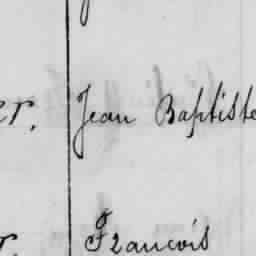 er. Jean Baptiste
r. François